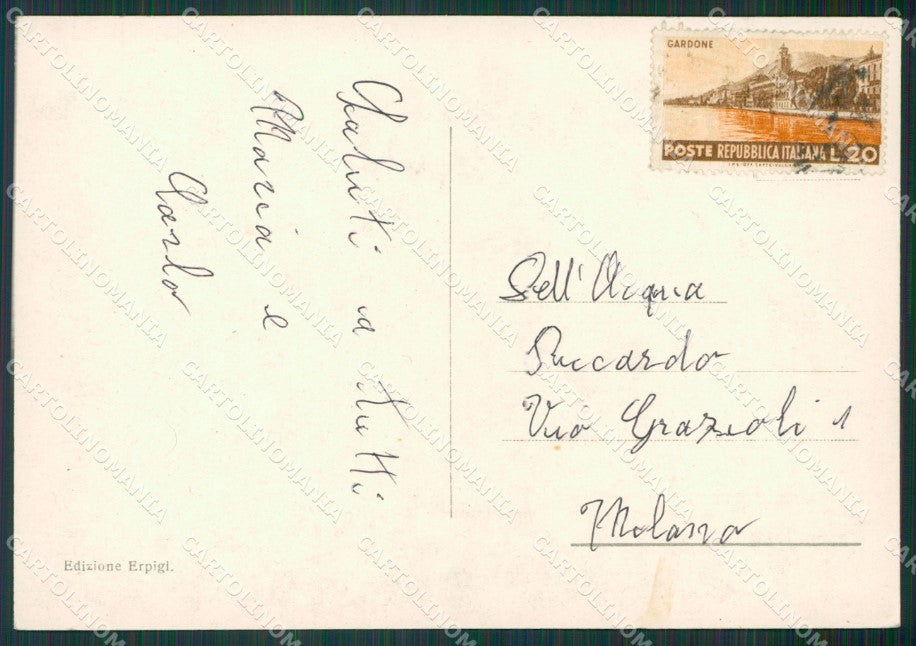 Saluti a tutti
Maria e
Carlo
GARDONE
POSTE REPUBBLICA ITALIANA L.20
Dell'Acqua
Riccardo
Via Grazioli 1
Milano
Edizione Erpigi.
CARTOLINOMANIA